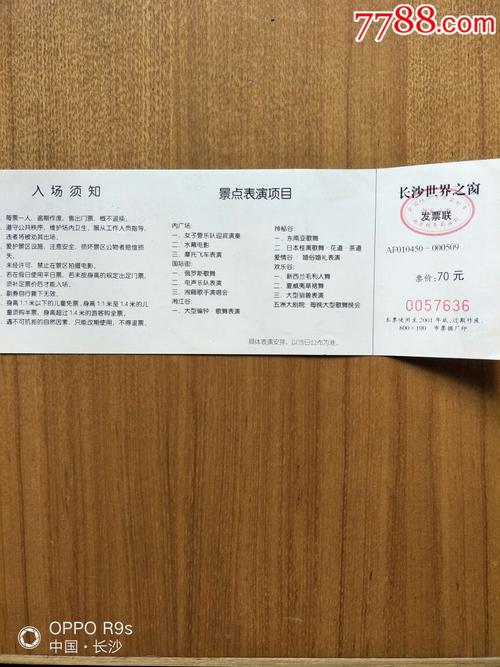 7788.com
入场须知
每票一人，逾期作废，售出门票，概不退换。
遵守公共秩序，维护场内卫生，服从工作人员指导，
违者将被劝其出场。
爱护景区设施，注意安全，损坏景区公物者赔偿损
失。
未经许可，禁止在景区拍摄电影。
若在假日使用平日票，若未按身高的规定出定门票，
须办好补票后才能入场。
副券自行撕下无效。
身高1.1米以下的儿童免票，身高1.1米至1.4米的儿
童须购半票，身高超过1.4米的游客购全票。
遇不可抗拒的自然因素，只能改期使用，不得退票。
景点表演项目
内广场：
一、女子管乐队迎宾演奏
二、水幕电影
三、摩托飞车表演
国际街：
一、俄罗斯歌舞
二、电声乐队表演
三、湘籍歌手演唱会
湘江谷：
一、大型编钟·歌舞表演
神秘谷：
一、东南亚歌舞
二、日本桂离歌舞·花道·茶道
爱情谷：婚俗婚礼表演
欢乐谷：
一、新西兰毛利人舞
二、夏威夷草裙舞
三、大型驯兽表演
五洲大剧院：每晚大型歌舞晚会
具体表演安排，以当日公布为准。
长沙世界之窗
发票联
AF010450-000509
票价：70元
0057636
本票使用至2001年底，过期作废。
800×100 市票据厂印
OPPO R9s
中国·长沙